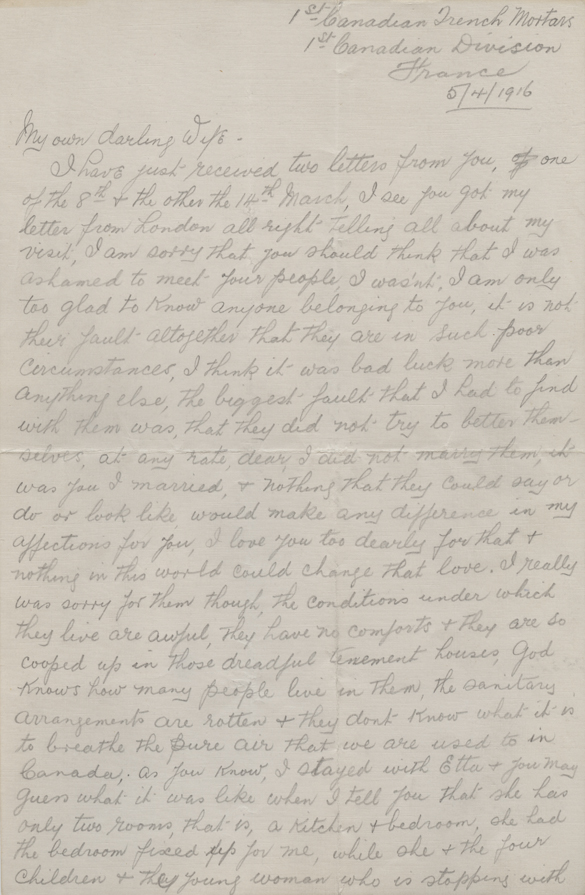 1st Canadian Trench Mortars
1st Canadian Division
France
5/4/1916
My own darling Wife -
I have just received two letters from you, one
of the 8th & the other the 14th March, I see you got my
letter from London all right telling all about my
visit, I am sorry that you should think that I was
ashamed to meet your people, I was'nt, I am only
too glad to know anyone belonging to you, it is not
their fault altogether that they are in such poor
circumstances, I think it was bad luck more than
anything else, the biggest fault that I had to find
with them was, that they did not try to better them-
selves, at any rate, dear, I did not marry them, it
was you I married, & nothing that they could say or
do or look like, would make any difference in my
affections for you, I love you too dearly for that &
nothing in this world could change that love. I really
was sorry for them though, the conditions under which
they live are awful, they have no comforts & they are so
cooped up in those dreadful tenement houses, God
knows how many people live in them, the sanitary
arrangements are rotten & they dont know what it is
to breathe the pure air that we are used to in
Canada,. As you know, I stayed with Etta & you may
guess what it was like when I tell you that she has
only two rooms, that is, a kitchen & bedroom, she had
the bedroom fixed up for me, while she & the four
children & the young woman who is stopping with